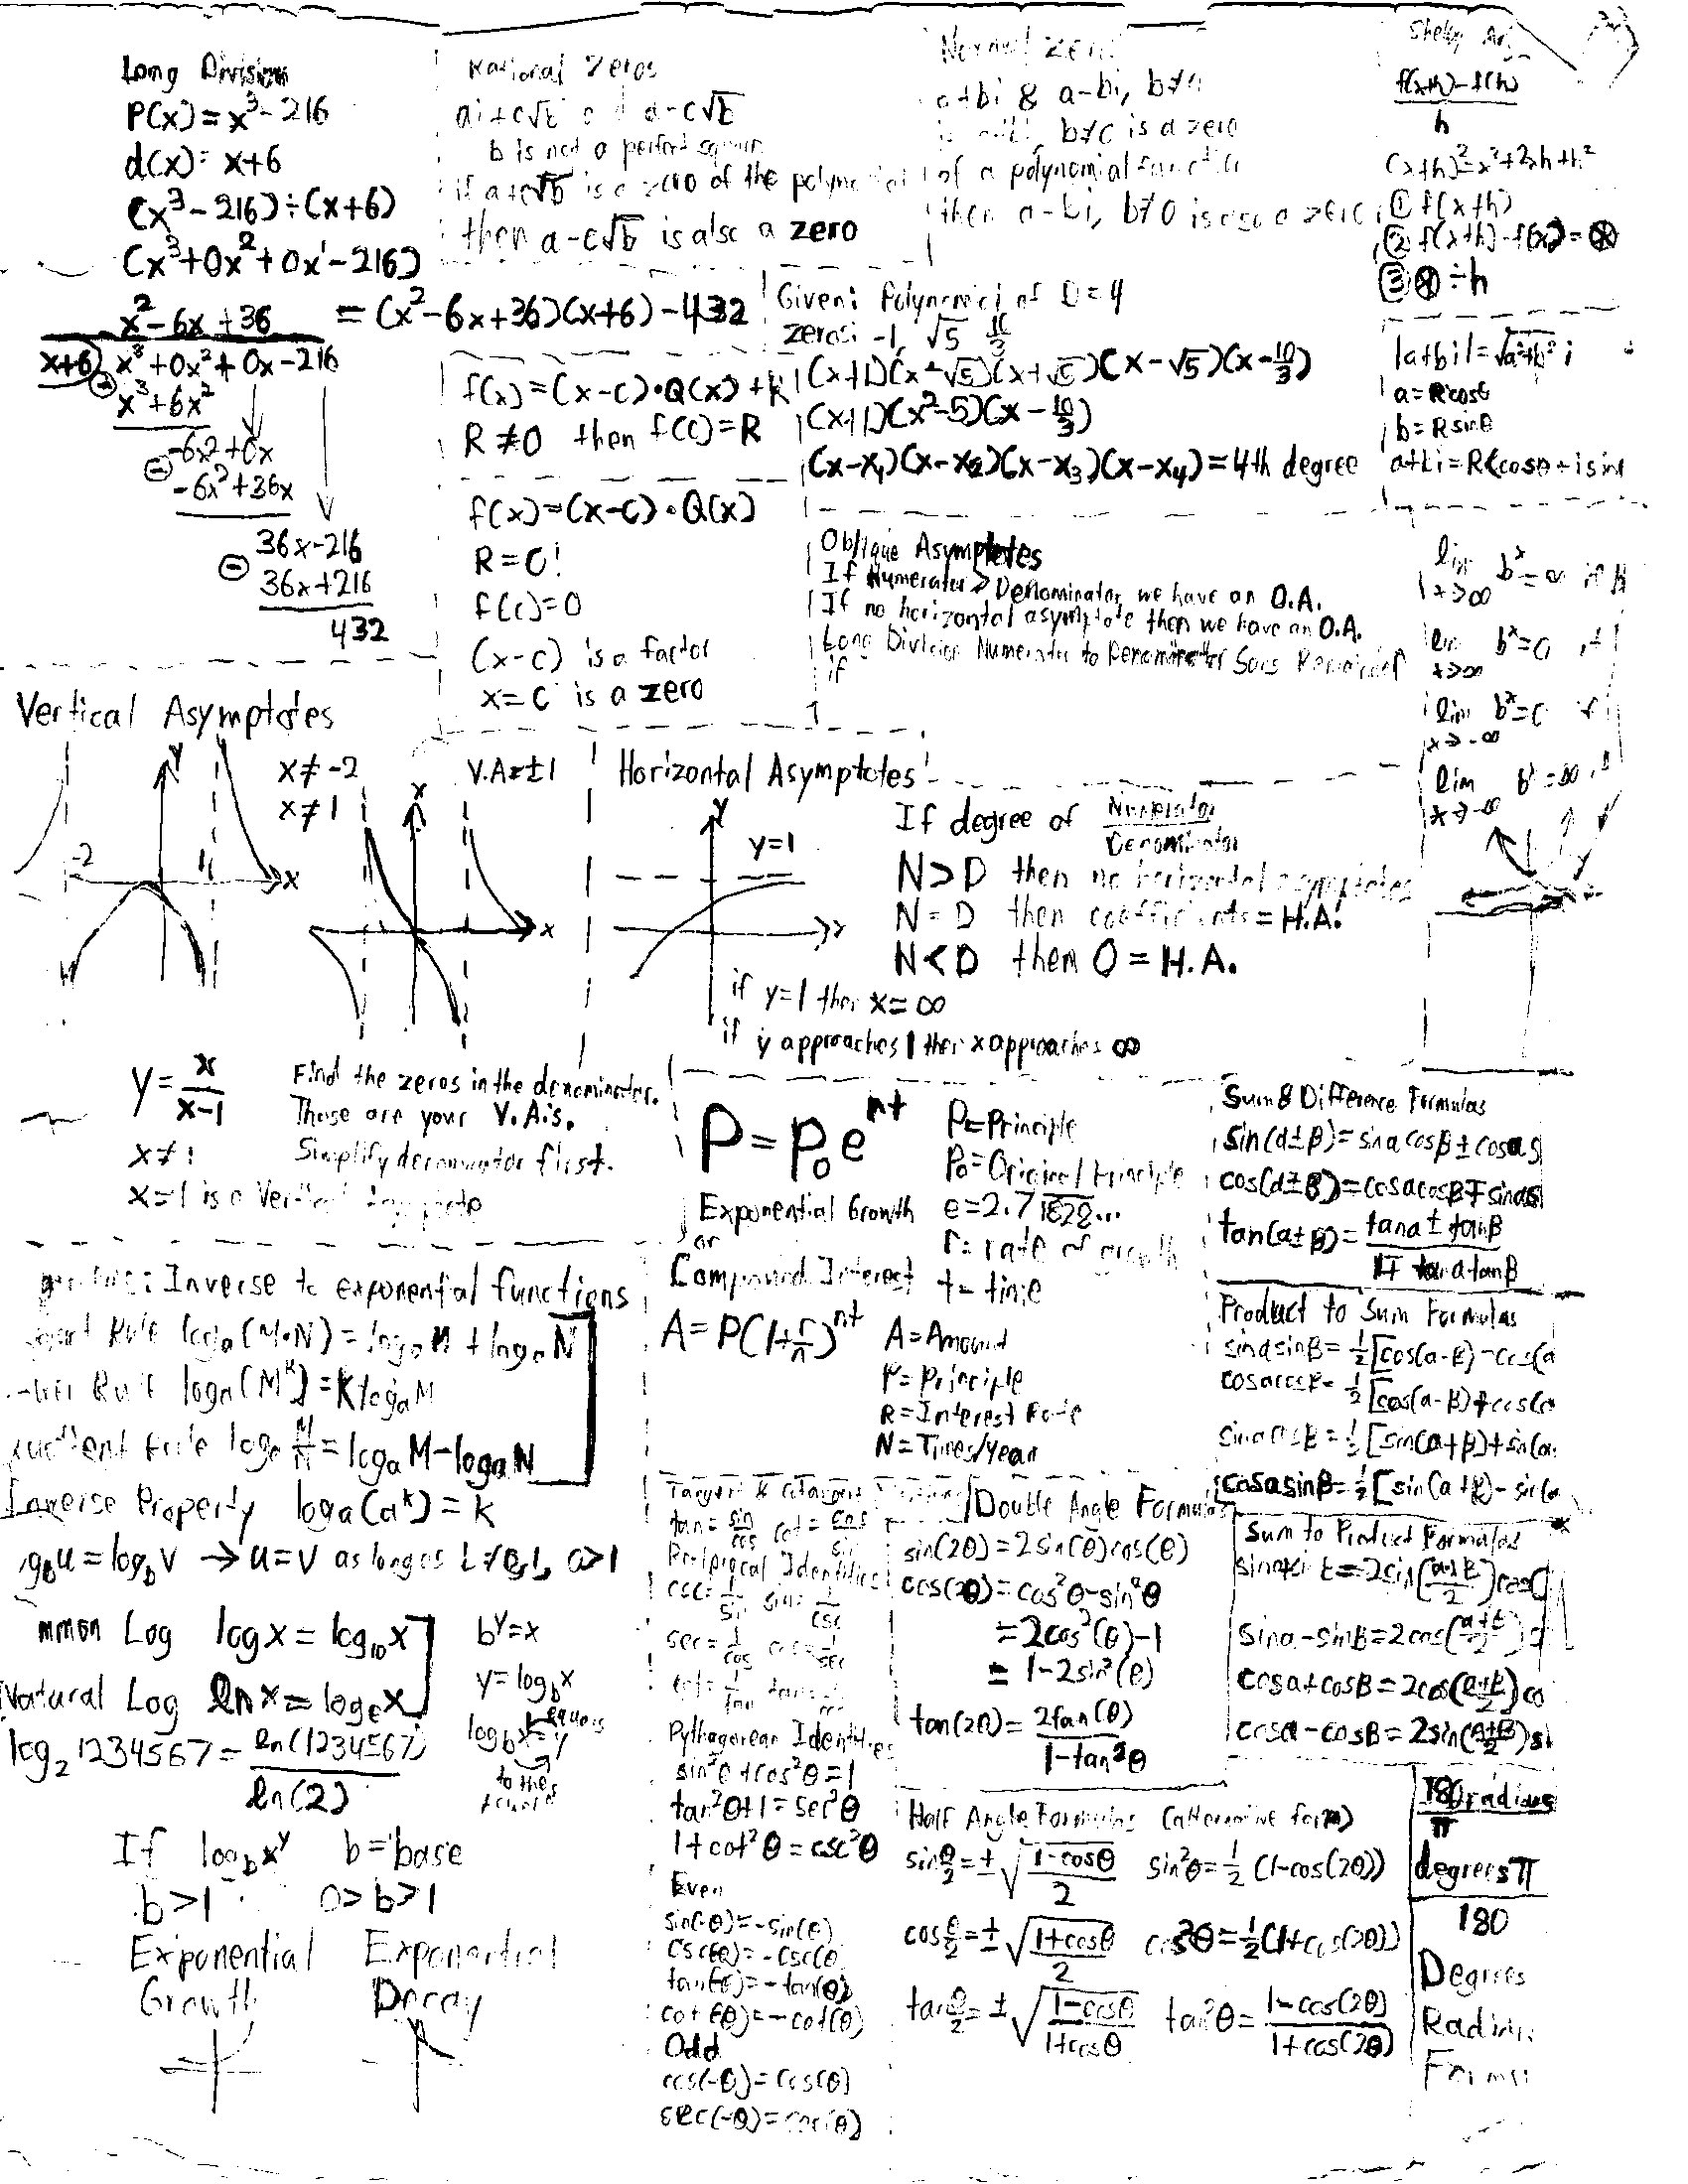 Long Division
P(x) = x³ - 216
d(x) = x+6
(x³ - 216) ÷ (x+6)
(x³ + 0x² + 0x¹ - 216)
x² - 6x + 36 = (x² - 6x + 36)(x+6) - 432
x+6) x³ + 0x² + 0x - 216
⊖ x³ + 6x²
-6x² + 0x
⊖ -6x² + 36x
36x - 216
⊖ 36x + 216
432
Rational Zeros
b is not a perfect square
if a+c√b is a zero of the polynomial
then a-c√b is also a zero
a+bi & a-bi, b≠0
b≠0 is a zero
of a polynomial function
then a-bi, b≠0 is also a zero
f(x+h) - f(h)
h
(x+h)² = x² + 2xh + h²
① f(x+h)
② f(x+h) - f(x) = ⊛
③ ⊛ ÷ h
Given: Polynomial of D=4
zeros: -1, √5 10/3
(x+1)(x-√5)(x+√5)(x-√5)(x-10/3)
(x+1)(x²-5)(x-10/3)
(x-x₁)(x-x₂)(x-x₃)(x-x₄) = 4th degree
|a+bi| = √a²+b² i
a = Rcosθ
b = Rsinθ
a+bi = R(cosθ + isin
f(x) = (x-c)•Q(x) + R
R ≠ 0 then f(c) = R
f(x) = (x-c)•Q(x)
R = 0!
f(c) = 0
(x-c) is a factor
x = c is a zero
Oblique Asymptotes
If Numerator > Denominator we have an O.A.
If no horizontal asymptote then we have an O.A.
Long Division Numerator to Denominator Remainder
if
lim b^x = ∞ if
x→∞
lim b^x = 0
x→∞
lim b^x = 0
x→-∞
lim b^x = ∞
x→-∞
Vertical Asymptotes
x ≠ -2
x ≠ 1
y
-2
1
x
V.A = ±1
x
x
y = x/(x-1)
x ≠ 1
x=1 is a Vertical Asymptote
Find the zeros in the denominator.
Those are your V.A.'s.
Simplify denominator first.
Horizontal Asymptotes
y
y=1
x
if y=1 then x=∞
if y approaches 1 then x approaches ∞
If degree of Numerator/Denominator
N>D then no horizontal asymptotes
N=D then coefficients = H.A.
N<D then 0 = H.A.
P = P₀e^rt
Exponential Growth
or
Compound Interest
P = Principle
P₀ = Original Principle
e = 2.71828...
r = rate of growth
t = time
A = P(1+r/n)^nt
A = Amount
P = Principle
R = Interest Rate
N = Times/year
Sum & Difference Formulas
sin(α±β) = sinα cosβ ± cosα s
cos(α±β) = cosαcosβ ∓ sinαs
tan(α±β) = tanα ± tanβ
1∓ tanαtanβ
Product to Sum Formulas
sinαsinβ = ½[cos(α-β) - cos(α
cosαcosβ = ½[cos(α-β) + cos(α
sinαcosβ = ½[sin(α+β) + sin(α
cosαsinβ = ½[sin(α+β) - sin(α
: Inverse to exponential functions
Rule logₐ(M•N) = logₐM + logₐN
Rule logₐ(M^k) = KlogₐM
Quotient Rule logₐ M/N = logₐM - logₐN
Inverse Property logₐ(a^k) = k
logᵦu = logᵦv → u=v as long as
mmon Log log x = log₁₀x
Natural Log ln x = logₑx
log₂1234567 = ln(1234567)
ln(2)
b^y = x
y = log_b x
log_b x = y
equals
to the
If log_b x^y b = base
b>1 0>b>1
Exponential Exponential
Growth Decay
Tangent & Cotangent
tan = sin/cos cot = cos/sin
Reciprocal Identities
csc = 1/sin sin = 1/csc
sec = 1/cos cos = 1/sec
cot = 1/tan tan =
Pythagorean Identities
sin²θ + cos²θ = 1
tan²θ + 1 = sec²θ
1 + cot²θ = csc²θ
Even
sin(-θ) = -sin(θ)
csc(-θ) = -csc(θ
tan(-θ) = -tan(θ)
cot(-θ) = -cot(θ)
Odd
cos(-θ) = cos(θ)
sec(-θ) =
Double Angle Formulas
sin(2θ) = 2sin(θ)cos(θ)
cos(2θ) = cos²θ - sin²θ
= 2cos²(θ) - 1
= 1 - 2sin²(θ)
tan(2θ) = 2tan(θ)
1 - tan²θ
Sum to Product Formulas
sinα+sinβ = 2sin((α+β)/2)cos(
sinα - sinβ = 2cos((α+β)/2)
cosα + cosβ = 2cos((α+β)/2)co
cosα - cosβ = 2sin((α+β)/2)si
Half Angle Formulas (alternative form)
sin θ/2 = ±√(1-cosθ)/2 sin²θ = ½(1-cos(2θ))
cos θ/2 = ±√(1+cosθ)/2 cos²θ = ½(1+cos(2θ))
tan θ/2 = ±√(1-cosθ)/(1+cosθ) tan²θ = (1-cos(2θ))/(1+cos(2θ))
180 radians
π
degrees π
180
Degrees
Radians